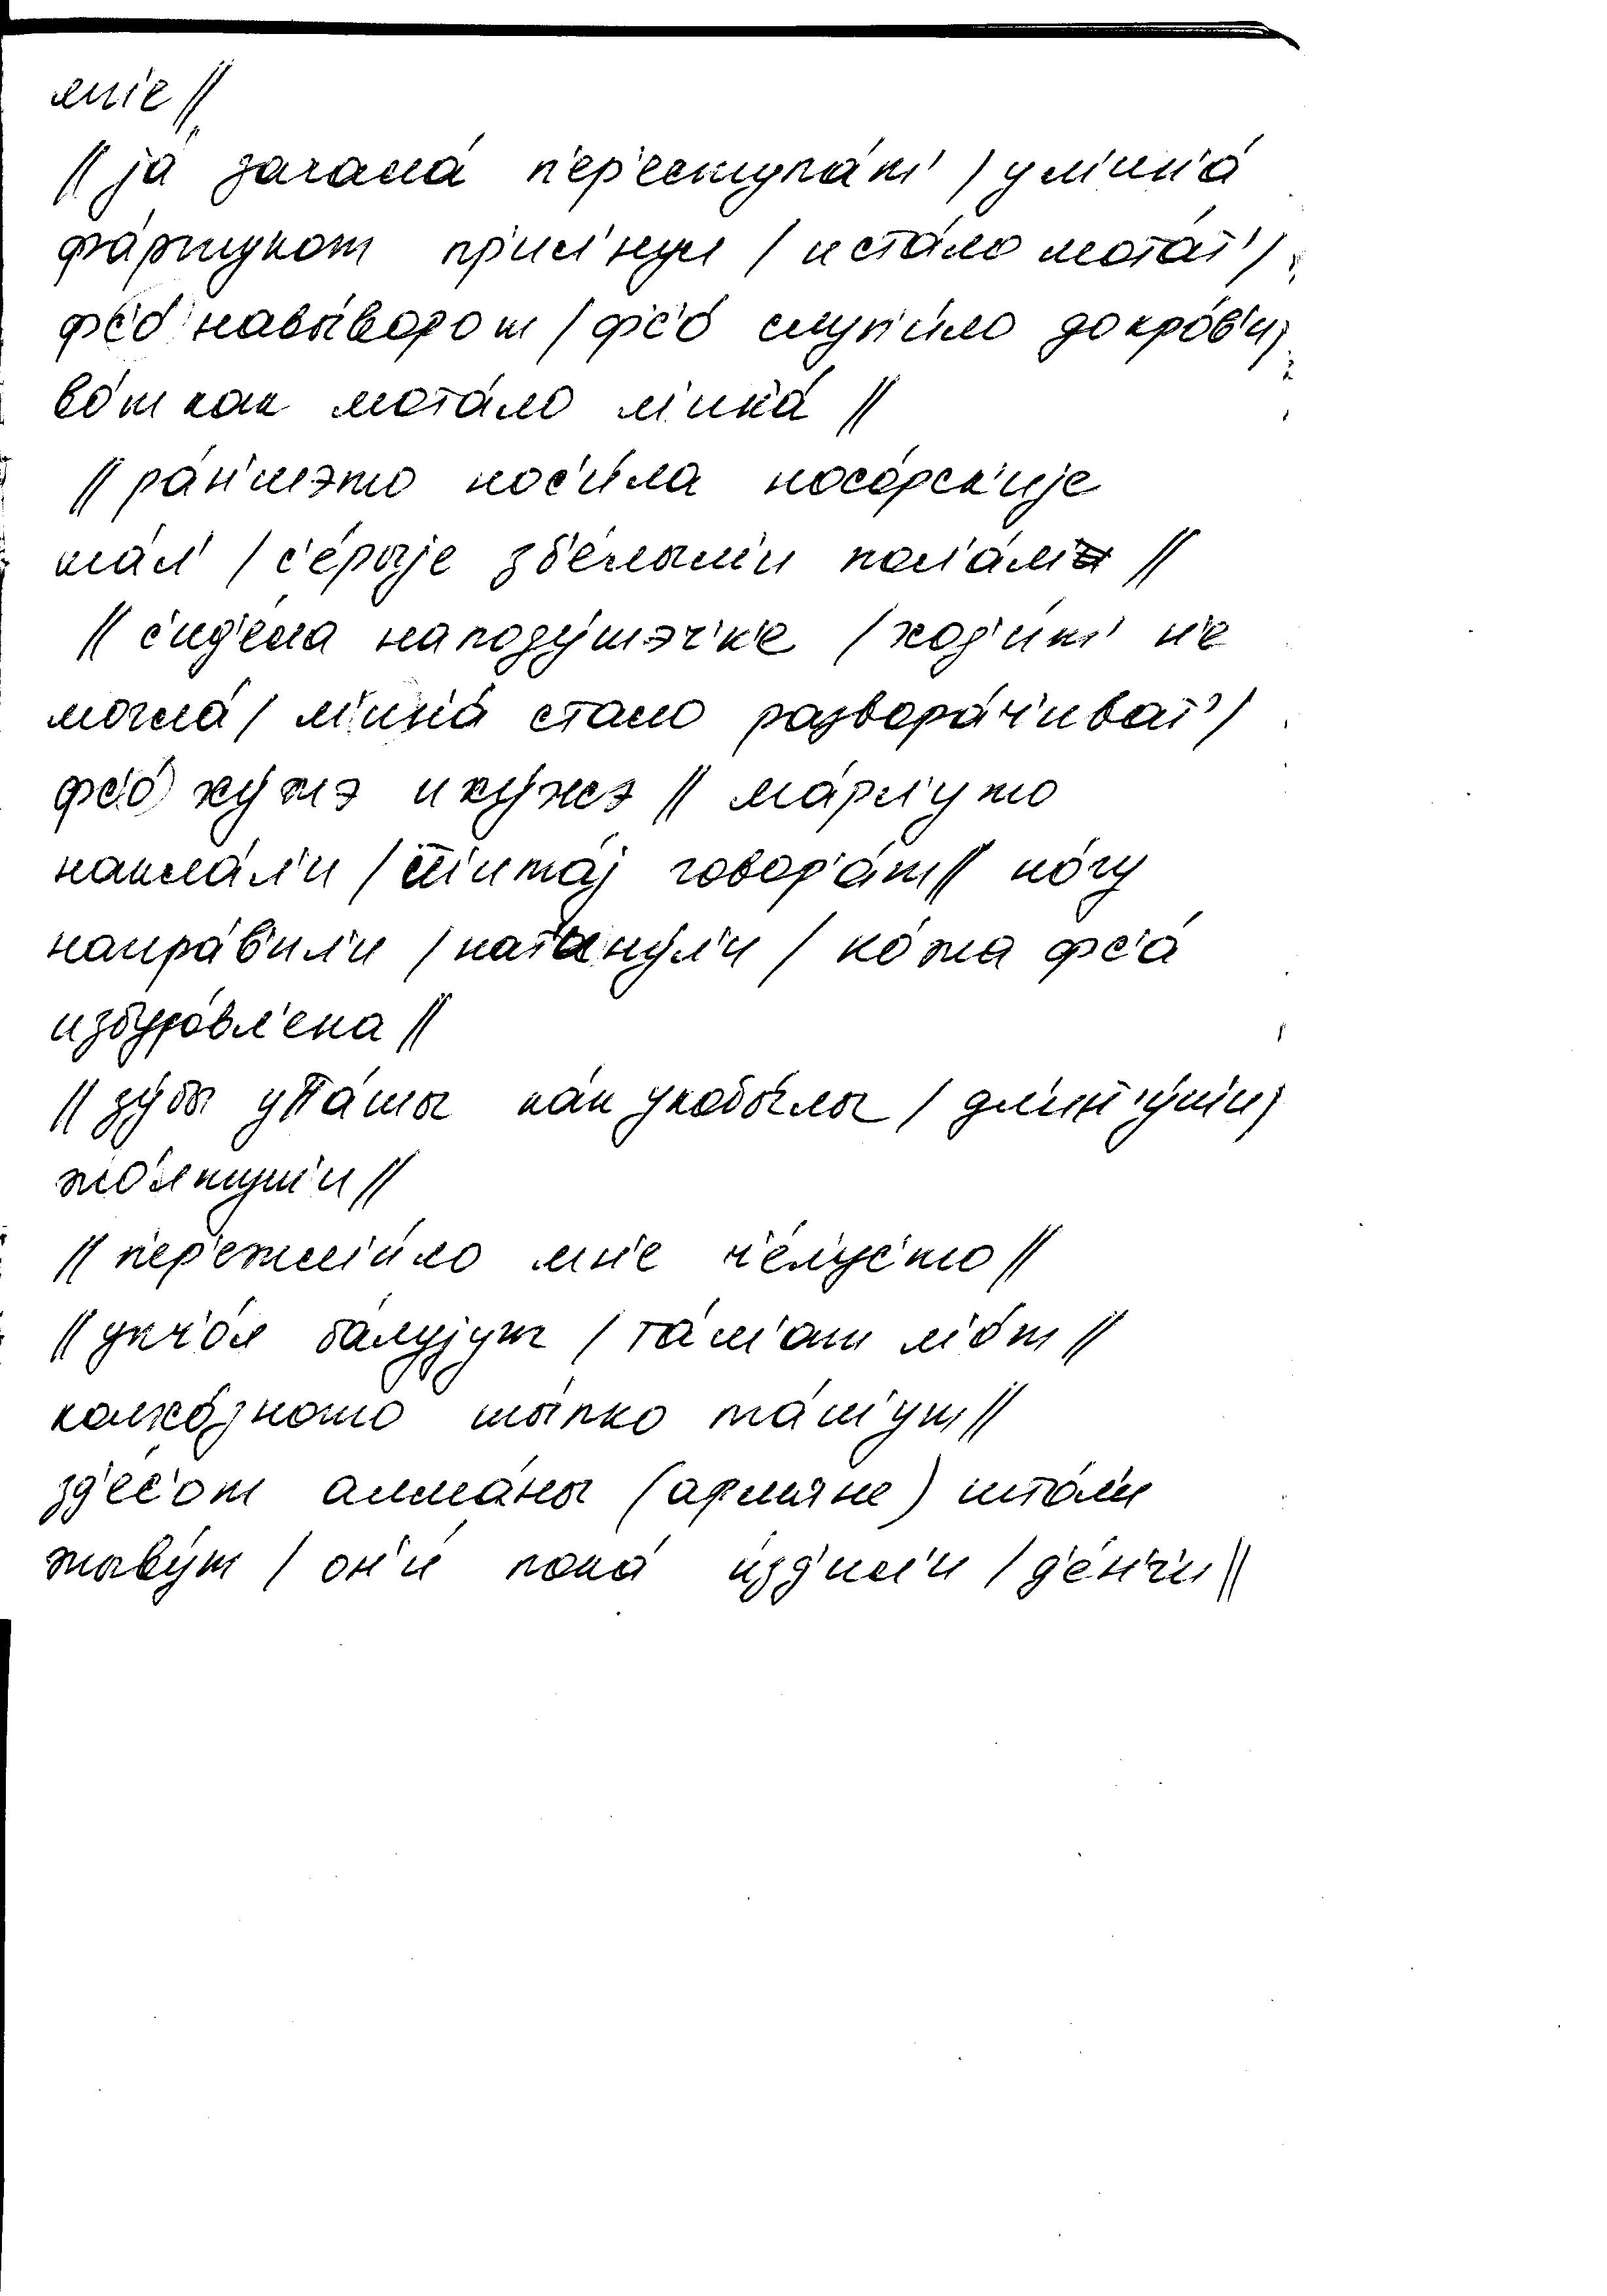 мн'е //
// jа́ зачала́ п'ер'еступа́т' / у м'ин'а́
фа́ртукот пр'ил'нул / и ста́ло мота́т' /
фс'о́ навы́ворот / фс'о́ слуп'и́ло до кро́в'и /
во́т как мота́ло м'ин'а́ //
// ра́н'шэто нос'и́ла носо́рск'иjе
ша́л' / с'е́рыjе зб'е́лым'и пол'а́м'и //
// с'ид'е́ла наподу́шэч'к'е / ход'и́т' н'е
могла́ / м'ин'а́ стало развора́ч'иват' /
фс'о́ ху́жэ и ху́жэ // ма́рл'уто
наклáл'и / т'ишáj говор'а́т // но́гу
напра́в'ил'и / нат'ану́л'и / ко́жа фс'а́
избуро́вл'ена //
// зу́бы у Па́шы ка́к у кобы́лы / дл'ин'у́шши /
жо́лтушши //
// п'ер'ежм'и́ло мн'е ч'е́л'ус'то //
// у пч'о́л ба́луjут / та́м'от м'о́т //
колхо́зното шы́пко та́ш'ут //
зд'е́с'от алма́ны (армяне) што́л'и
жыву́т / он'и́ пока́ и́зд'ил'и / д'е́н'г'и //